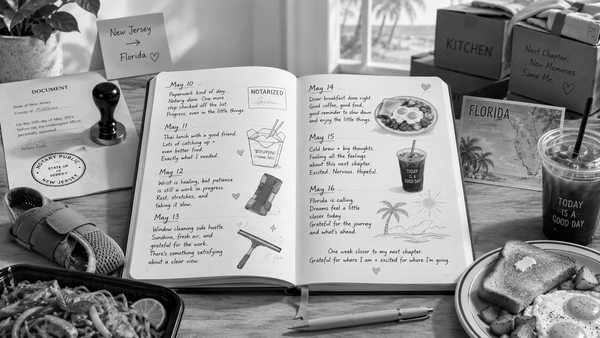 New Jersey
→
Florida ♡
DOCUMENT
State of New Jersey
County of Middlesex
On this 10th day of May, 2024,
before me, the undersigned officer,
personally appeared
NOTARY PUBLIC
STATE OF
NEW JERSEY
May 10
Paperwork kind of day.
Notary done. One more
step checked off the list.
Progress, even in the little things.
NOTARIZED
May 11
Thai lunch with a good friend.
Lots of catching up +
even better food.
Exactly what I needed.
May 12
Wrist is healing, but patience
is still a work in progress.
Rest, stretches, and
taking it slow.
May 13
Window cleaning side hustle.
Sunshine, fresh air, and
grateful for the work.
There's something satisfying
about a clear view.
May 14
Diner breakfast done right.
Good coffee, good food,
good reminder to slow down
and enjoy the little things.
May 15
Cold brew + big thoughts.
Feeling all the feelings
about this next chapter.
Excited. Nervous. Hopeful.
TODAY
IS A
GOOD DAY
May 16
Florida is calling.
Dreams feel a little
closer today.
Grateful for the journey
and what's ahead.
One week closer to my next chapter.
Grateful for where I am + excited for where I'm going.
KITCHEN
Next Chapter.
New Memories.
Same Me.
FLORIDA
TODAY
IS A
GOOD DAY